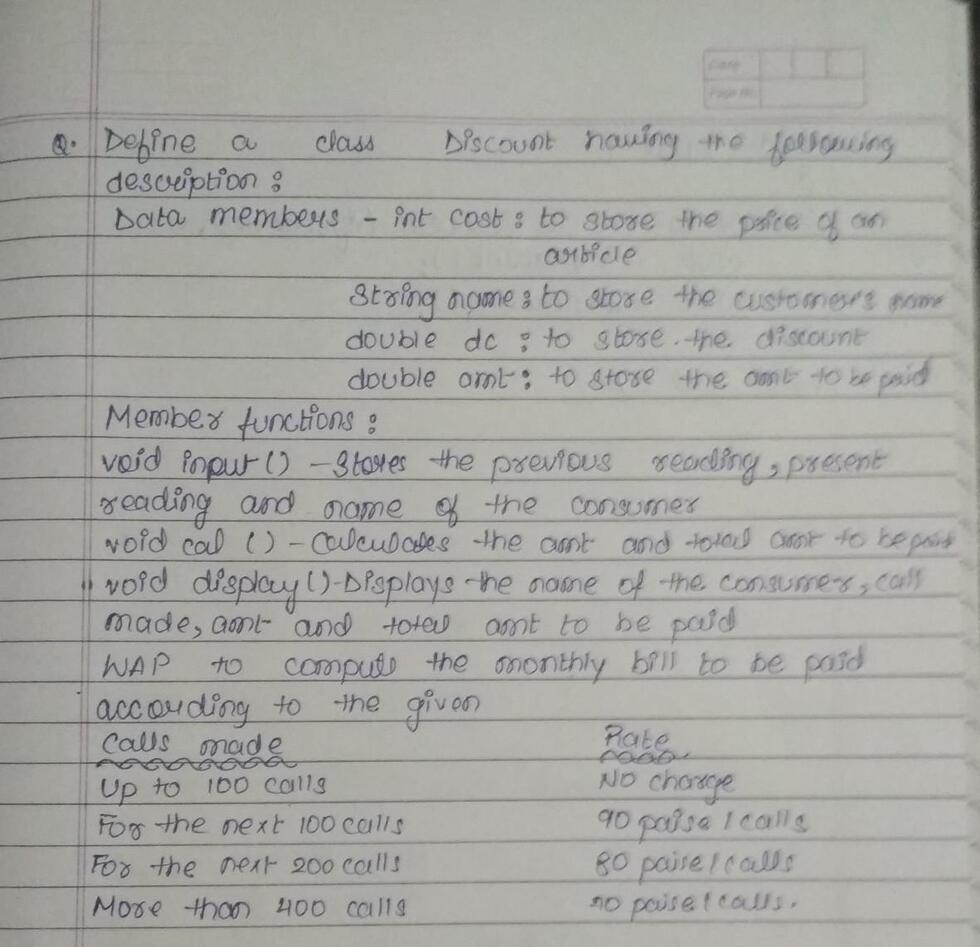 Date
Page No.
Q. Define a class Discount having the following
description :
Data members - int cost : to store the price of an
article
String name : to store the customer's name
double dc : to store the discount
double amt : to store the amt to be paid
Member functions :
void input () - Stores the previous reading, present
reading and name of the consumer
void cal () - Calculates the amt and total amt to be paid
void display () - Displays the name of the consumer, call
made, amt and total amt to be paid
WAP to compute the monthly bill to be paid
according to the given
Calls made Rate
Up to 100 calls No charge
For the next 100 calls 90 paise / calls
For the next 200 calls 80 paise / calls
More than 400 calls 70 paise / calls.